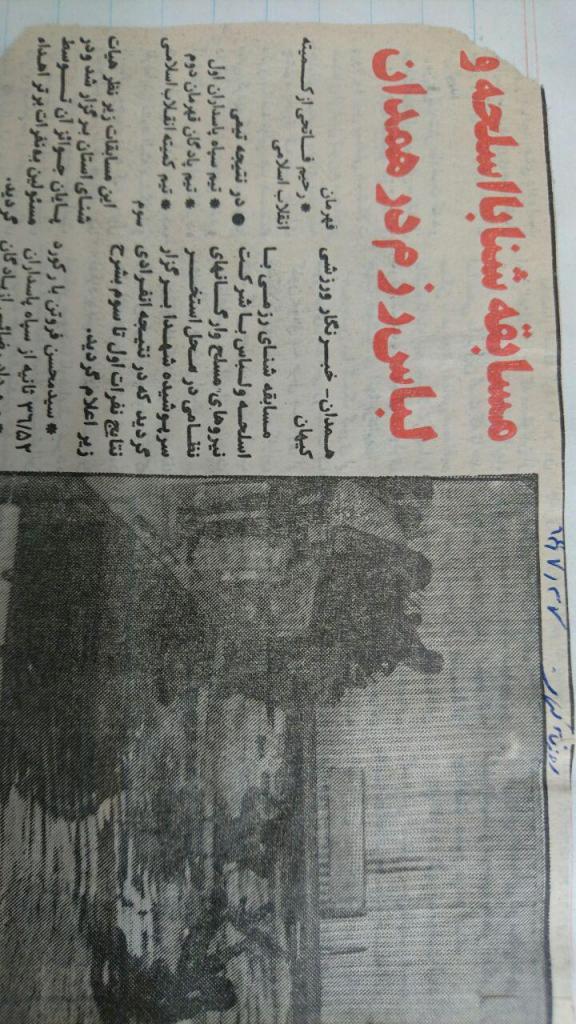 مسابقه شنا با اسلحه و
لباس رزم در همدان
همدان- خبرنگار ورزشی
کیهان
مسابقه شنای رزمی با
اسلحه و لباس با شرکت
نیروهای مسلح و ارگانهای
نظامی در محل استخر
سرپوشیده شهدا برگزار
گردید که در نتیجه انفرادی
نتایج نفرات اول تا سوم بشرح
زیر اعلام گردید.
* سیدمحسن فروتن با رکورد
۳۶/۵۲ ثانیه از سپاه پاسداران
از پادگان
قهرمان
* رحیم فاتحی از کمیته
انقلاب اسلامی
* در نتیجه تیمی
* تیم سپاه پاسداران اول
* تیم پادگان قهرمان دوم
* تیم کمیته انقلاب اسلامی
سوم
این مسابقات زیر نظر هیات
شنای استان برگزار شد و در
پایان جوائز آن توسط
مسئولین به نفرات برتر اهداء
گردید.